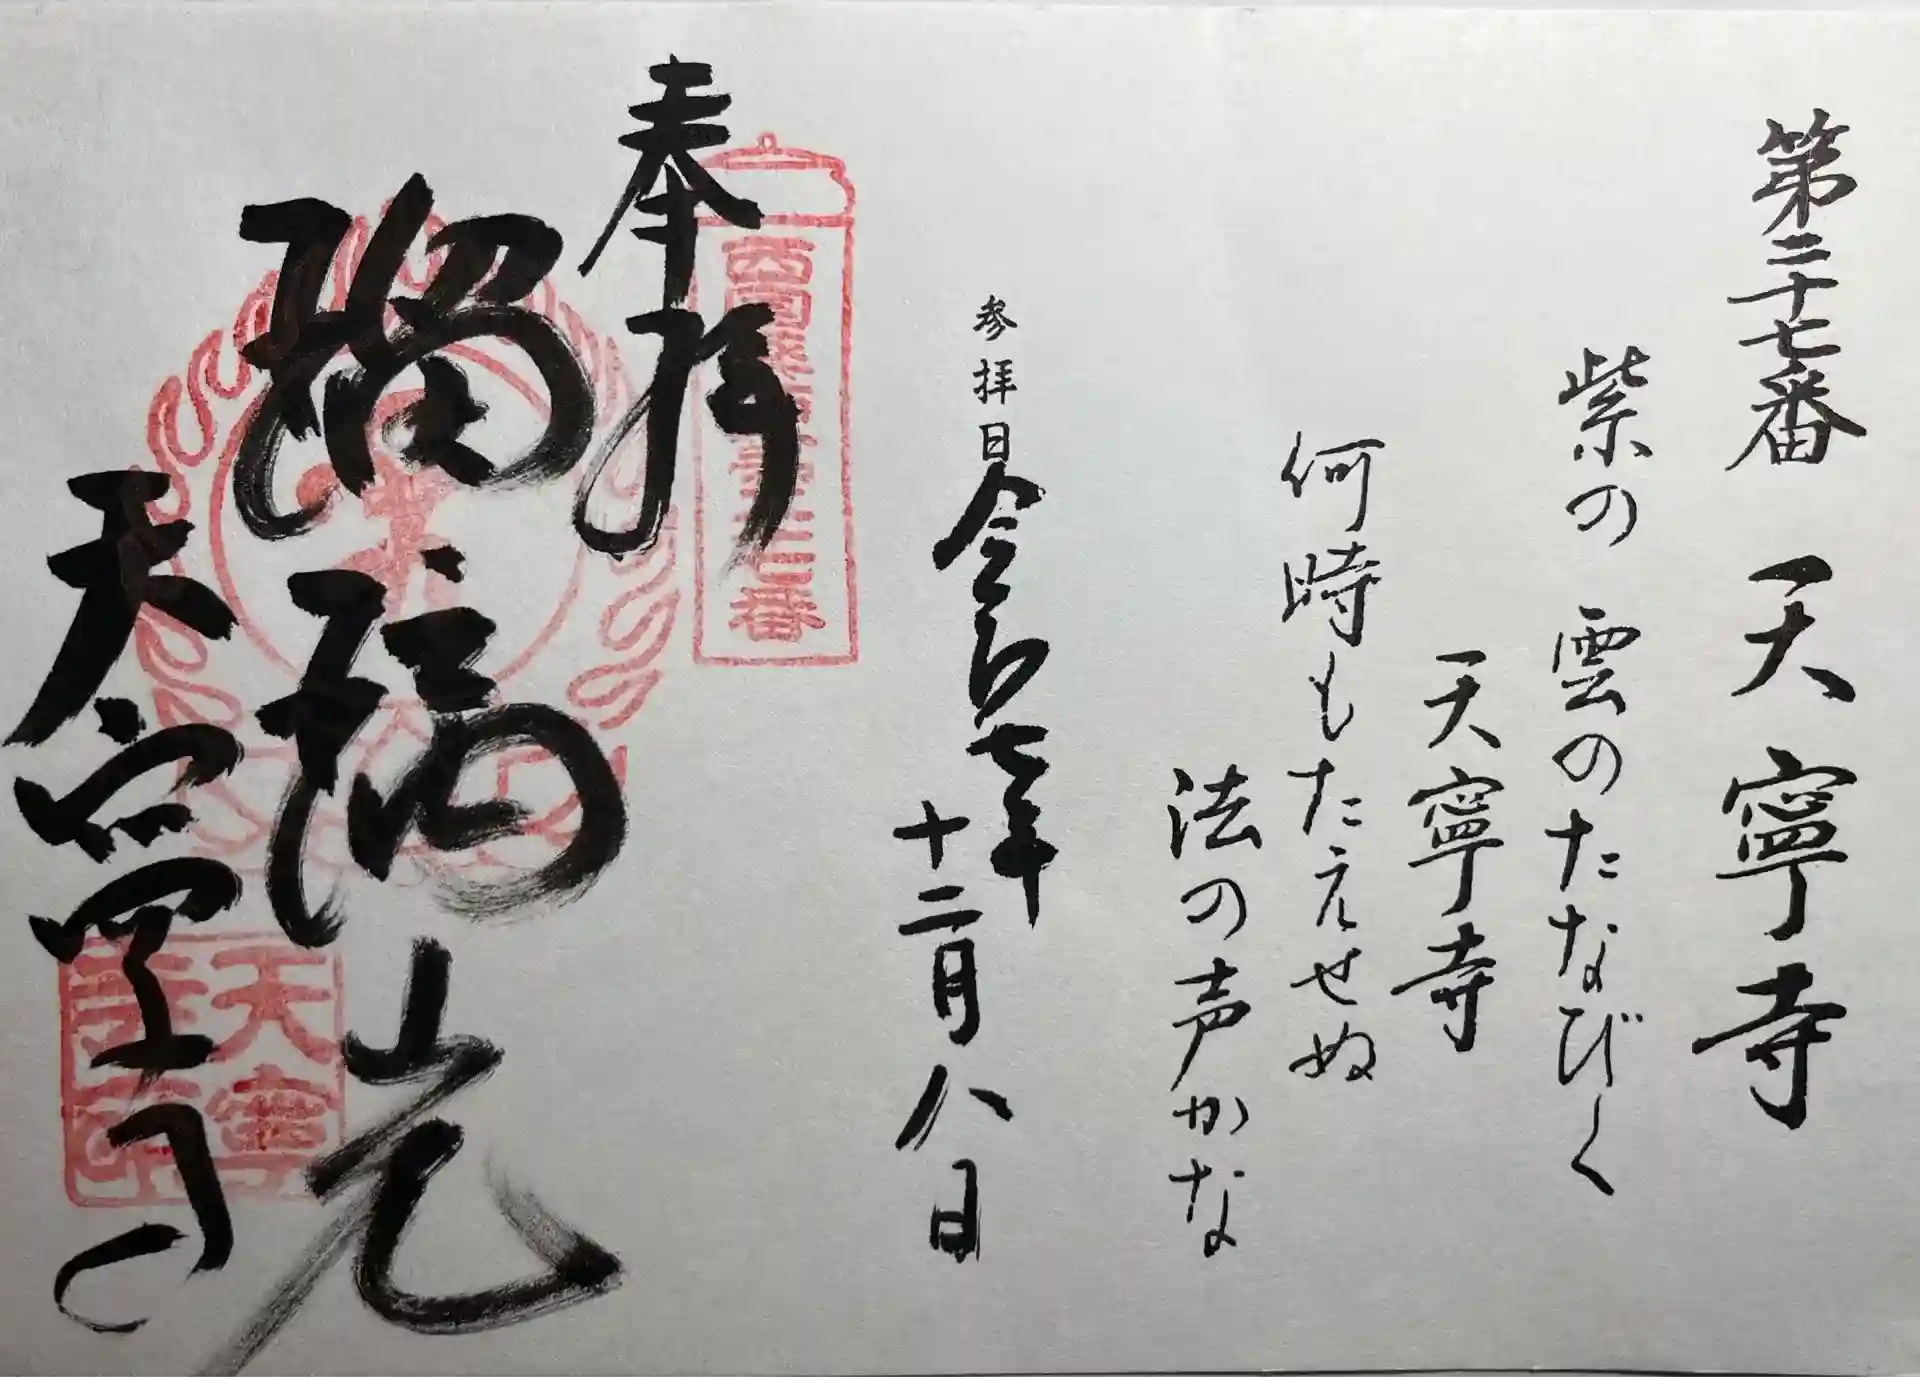 第二十七番 天寧寺
紫の 雲のたなびく
天寧寺
何時もたえせぬ
法の声かな
参拝日 令和七年
十二月八日
奉拝
瑠璃光
天寧寺